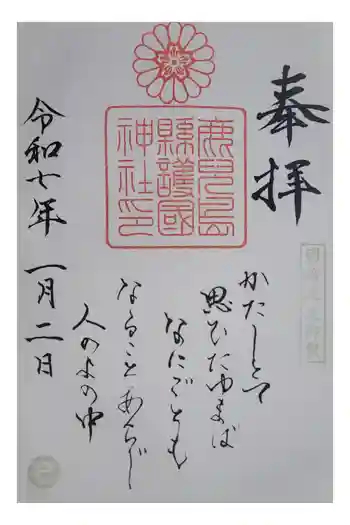 奉拝
鹿児島
縣護國
神社印
かたしとて
思ひたゆまば
なにごとも
なることあらじ
人のよの中
令和七年一月二日